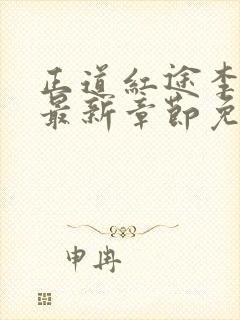 正道红途李
最新章节免
申冉